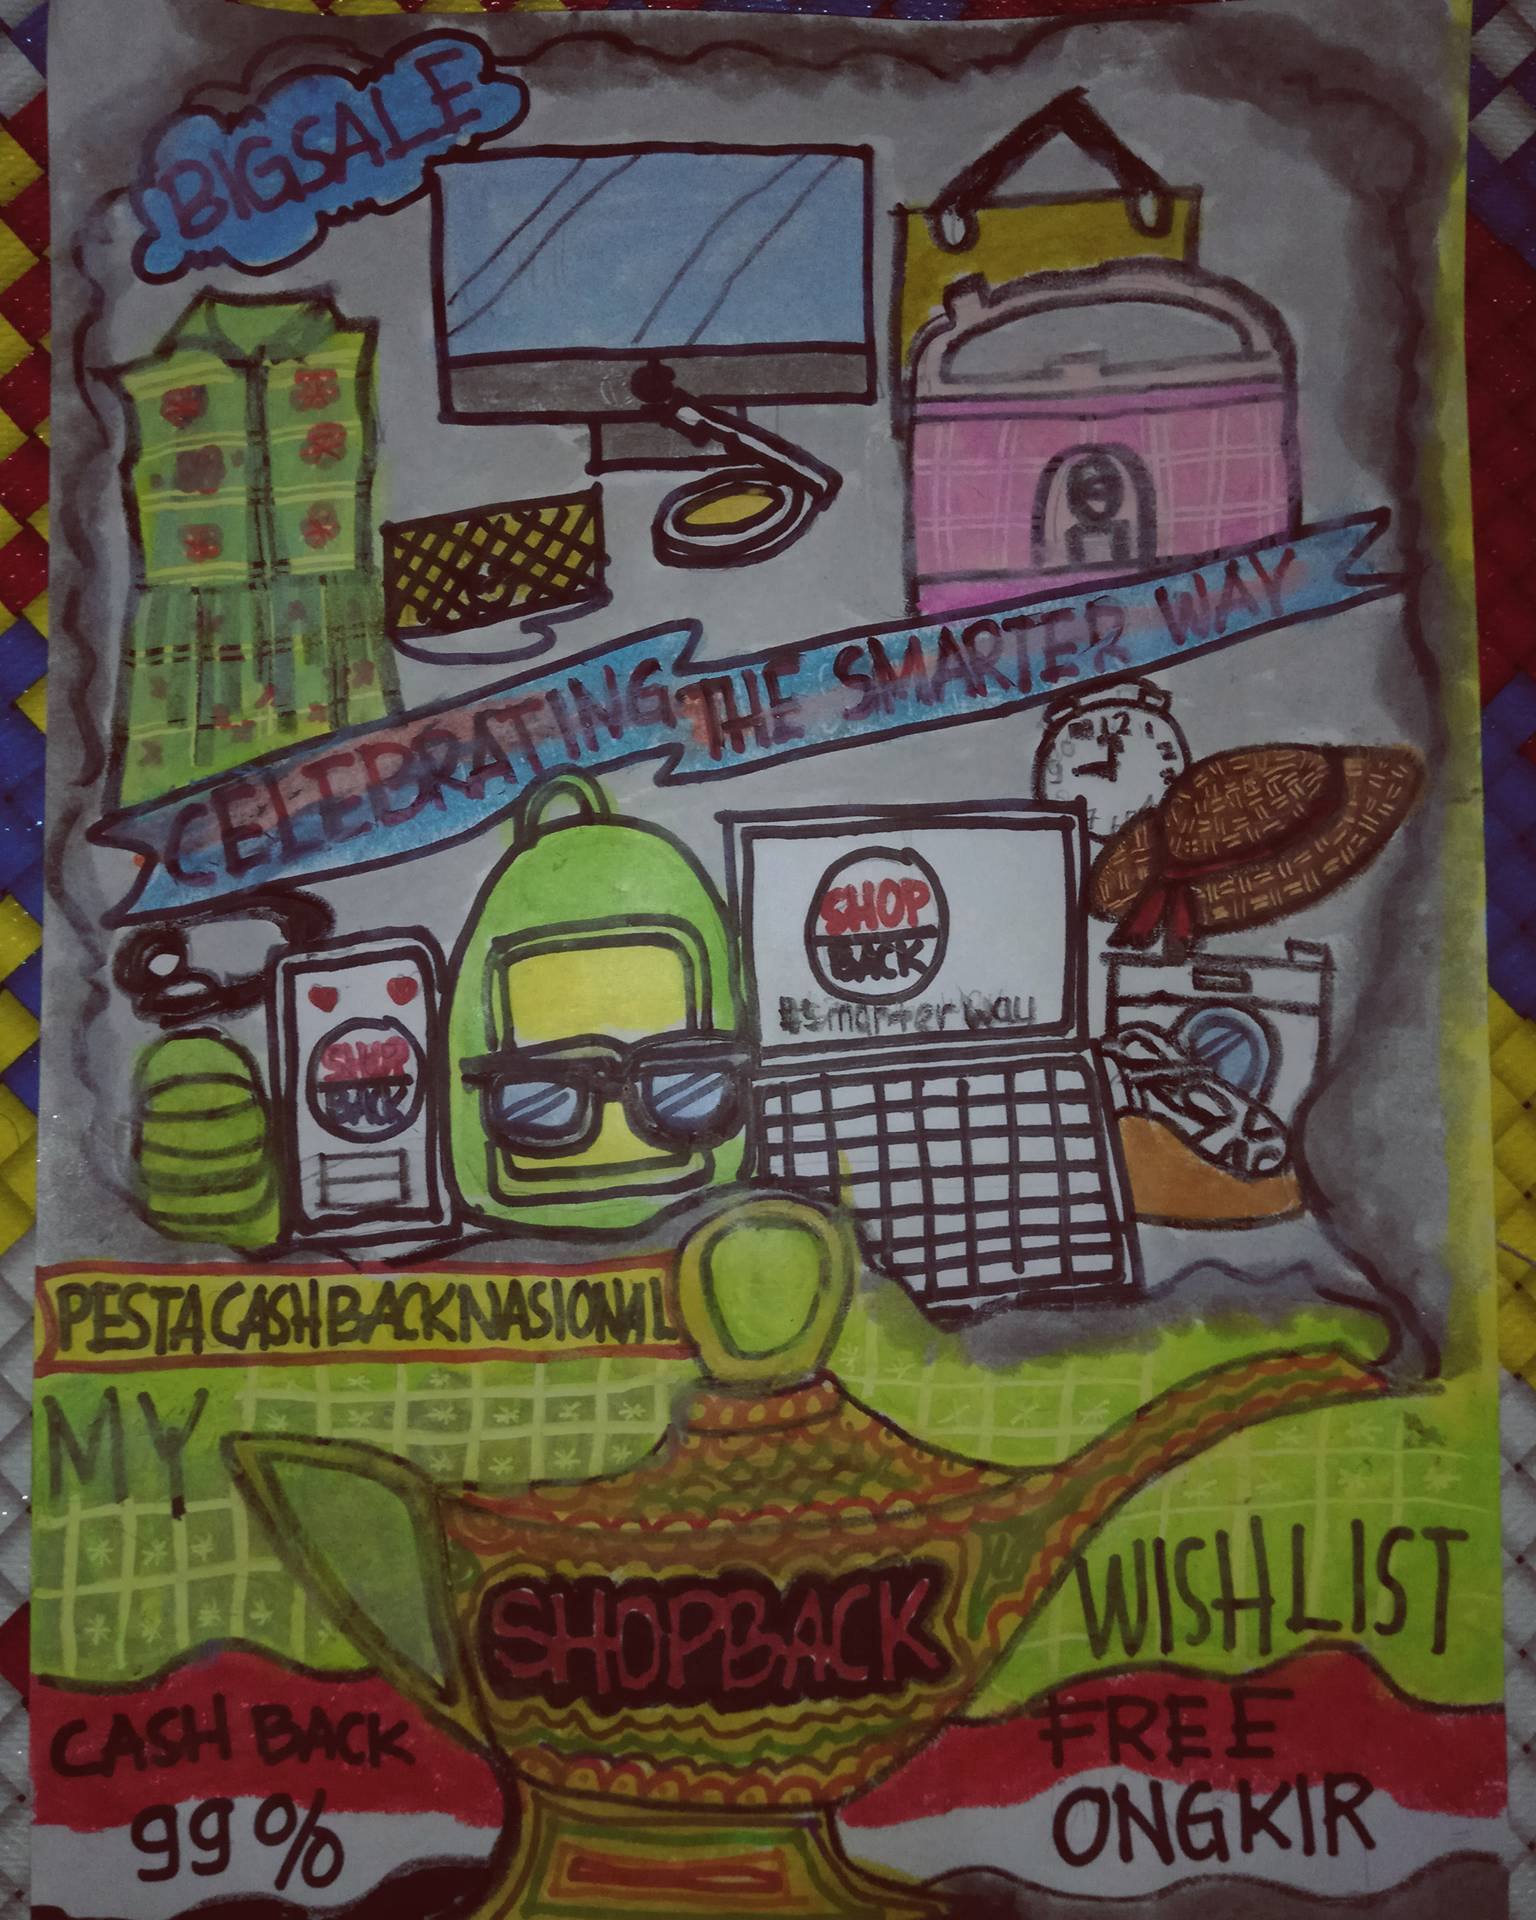 BIGSALE
CELEBRATING THE SMARTER WAY
12
SHOP
BACK
#SmarterWay
SHOP
BACK
PESTA CASHBACK NASIONAL
MY
WISHLIST
SHOPBACK
CASH BACK
99%
FREE
ONGKIR